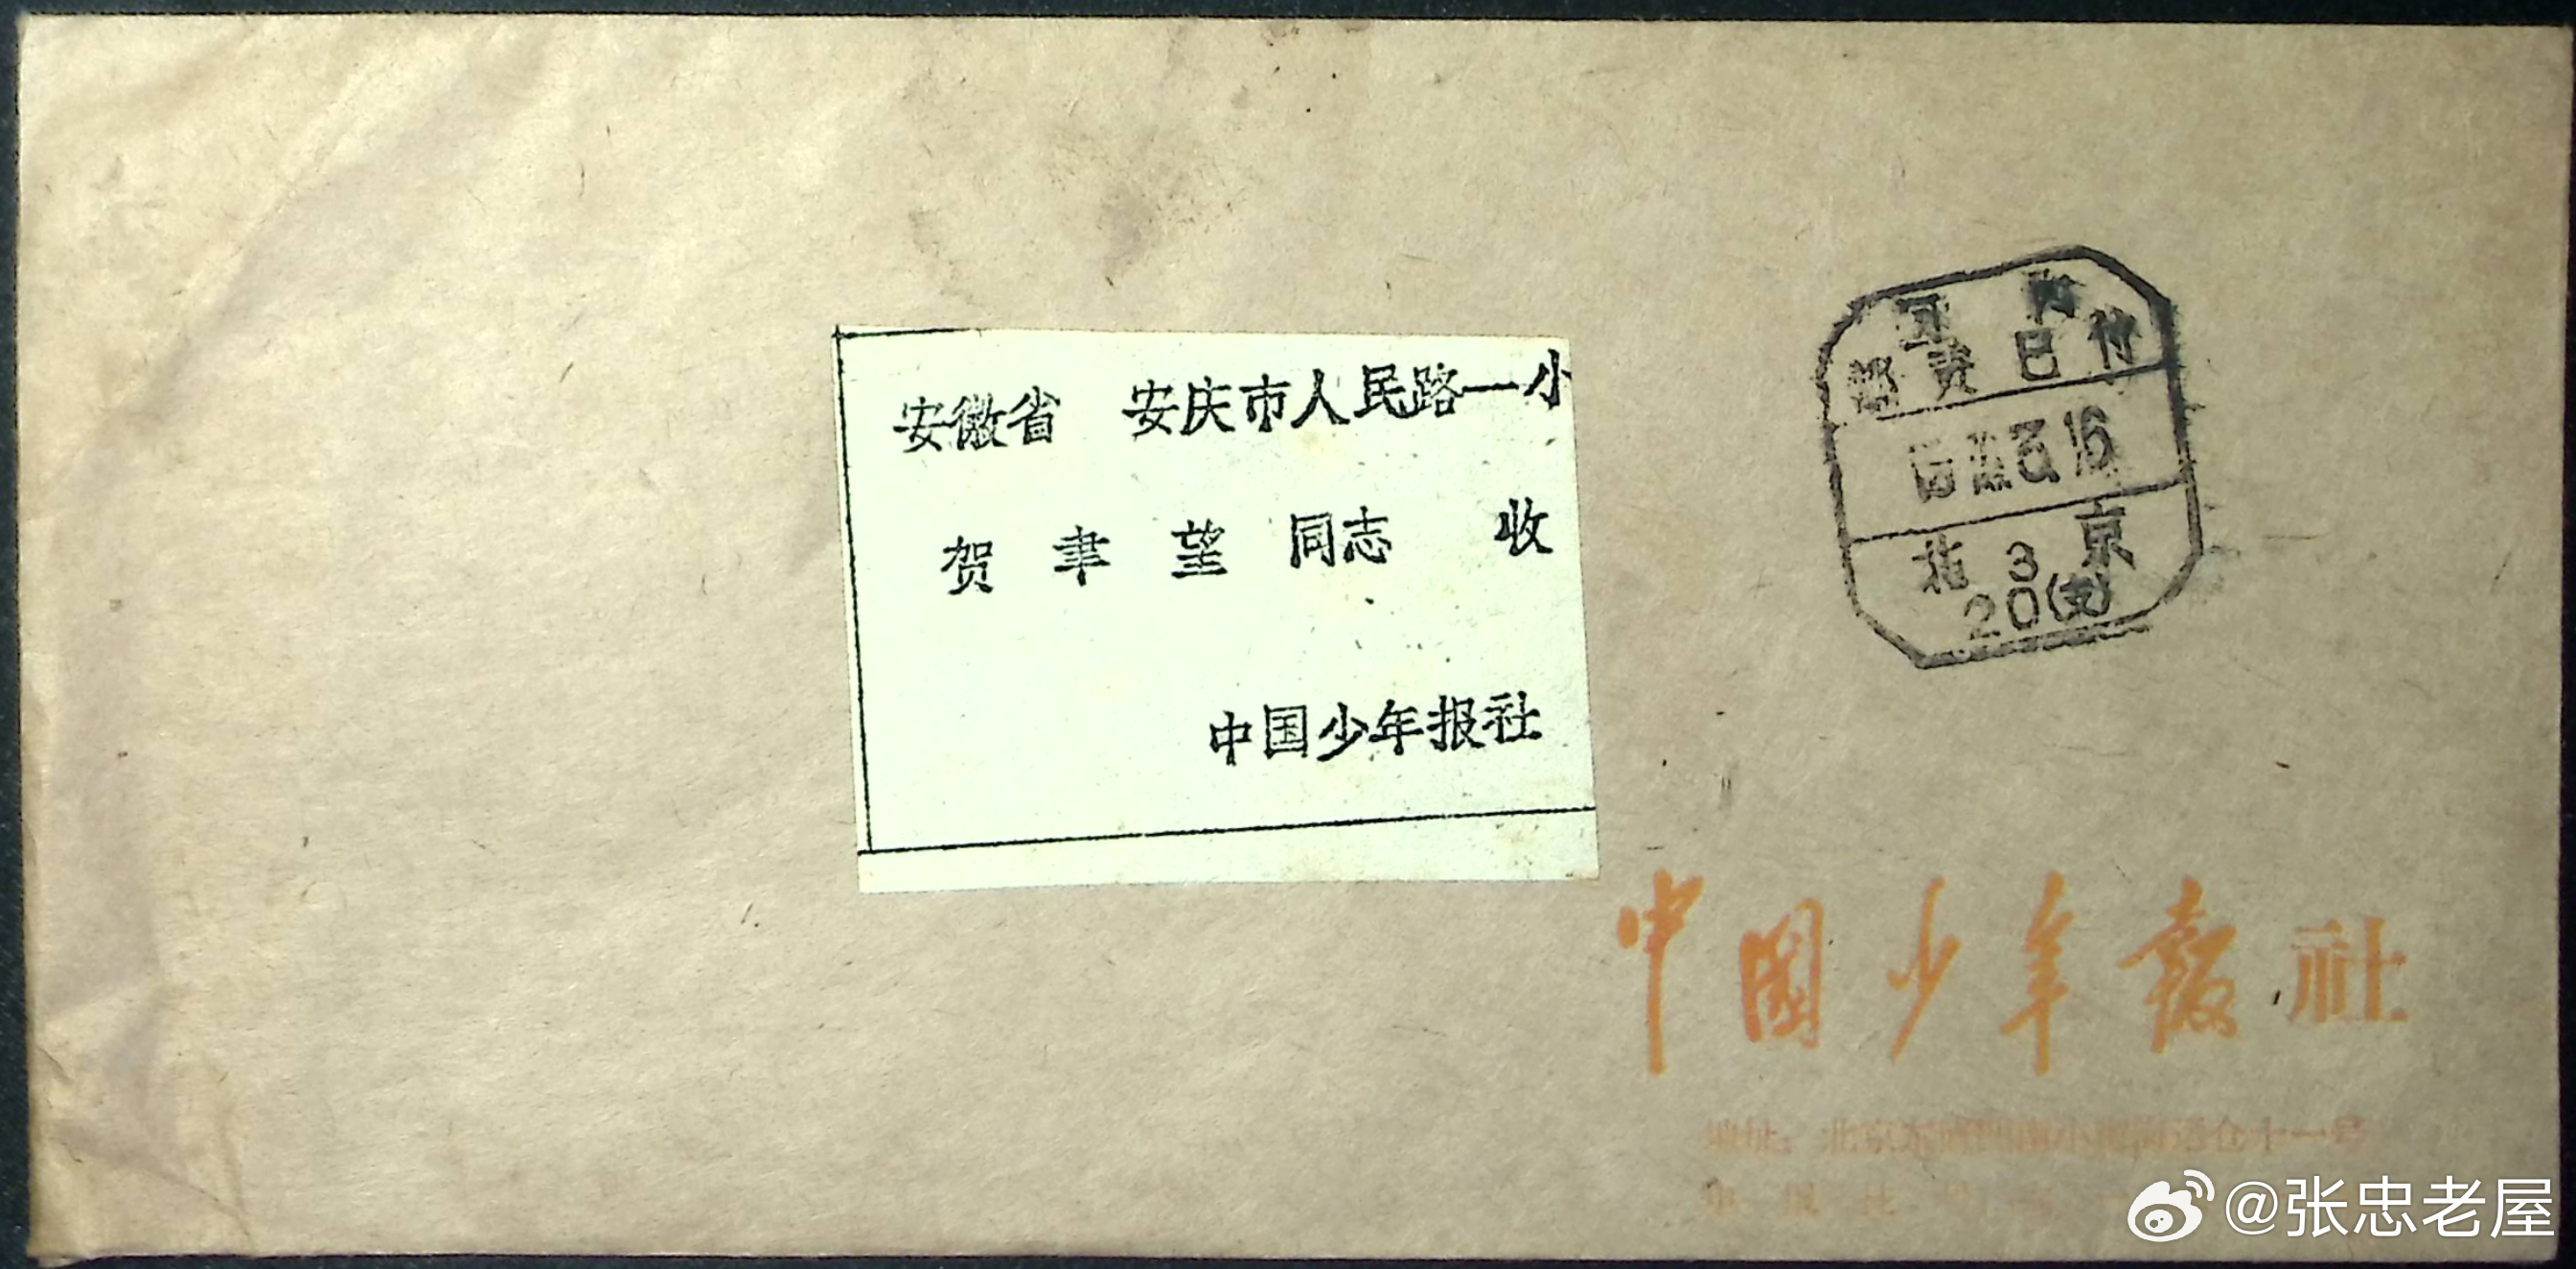 安徽省 安庆市人民路一小
贺 聿 望 同志 收
中国少年报社
国内
邮资已付
16
北3京
20(支)
中國少年報社
地址：北京东
仓十一号
@张忠老屋